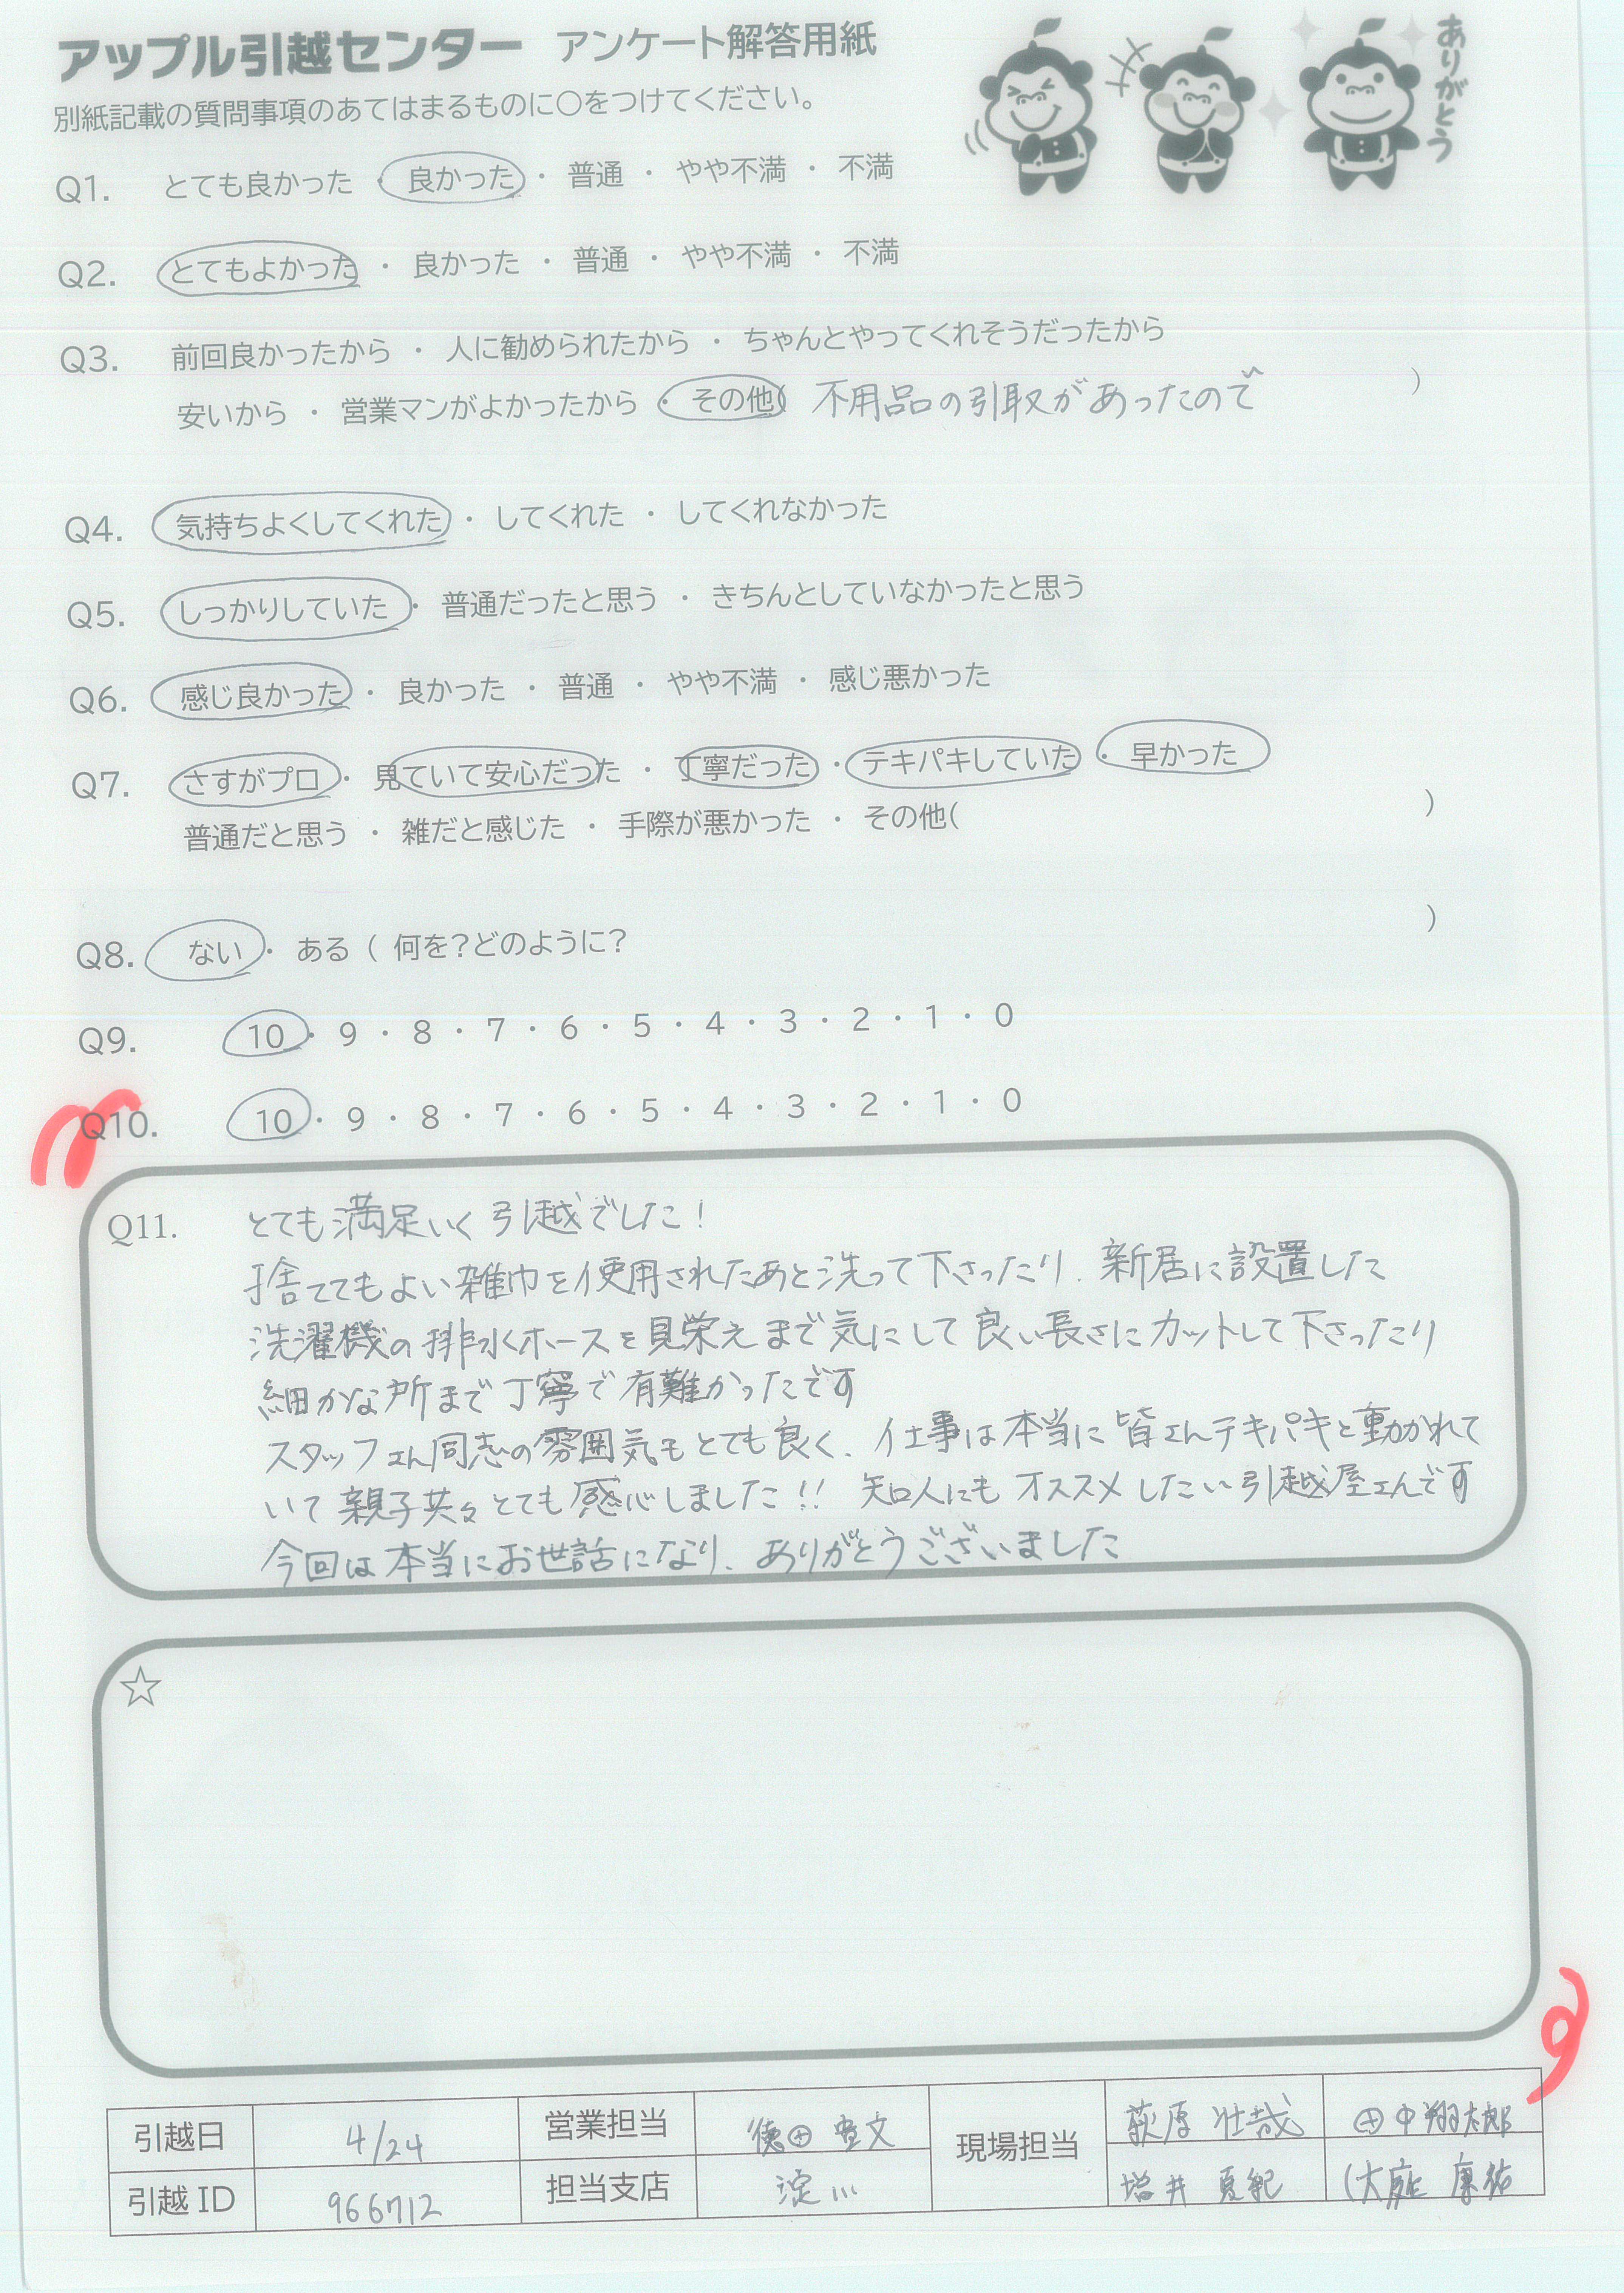 アップル引越センター アンケート解答用紙
ありがとう
別紙記載の質問事項のあてはまるものに〇をつけてください。
Q1. とても良かった ・ 良かった ・ 普通 ・ やや不満 ・ 不満
Q2. とてもよかった ・ 良かった ・ 普通 ・ やや不満 ・ 不満
Q3. 前回良かったから ・ 人に勧められたから ・ ちゃんとやってくれそうだったから
安いから ・ 営業マンがよかったから ・ その他( 不用品の引取があったので )
Q4. 気持ちよくしてくれた ・ してくれた ・ してくれなかった
Q5. しっかりしていた ・ 普通だったと思う ・ きちんとしていなかったと思う
Q6. 感じ良かった ・ 良かった ・ 普通 ・ やや不満 ・ 感じ悪かった
Q7. さすがプロ ・ 見ていて安心だった ・ 丁寧だった ・ テキパキしていた ・ 早かった
普通だと思う ・ 雑だと感じた ・ 手際が悪かった ・ その他( )
Q8. ない ・ ある ( 何を?どのように? )
Q9. 10 ・ 9 ・ 8 ・ 7 ・ 6 ・ 5 ・ 4 ・ 3 ・ 2 ・ 1 ・ 0
Q10. 10 ・ 9 ・ 8 ・ 7 ・ 6 ・ 5 ・ 4 ・ 3 ・ 2 ・ 1 ・ 0
Q11. とても満足いく引越でした!
捨ててもよい雑巾を使用されたあと洗って下さったり、新居に設置した
洗濯機の排水ホースを見栄えまで気にして良い長さにカットして下さったり
細かな所まで丁寧で有難かったです
スタッフさん同志の雰囲気もとても良く、仕事は本当に皆さんテキパキと動かれて
いて親子共々とても感心しました!! 知人にもオススメしたい引越屋さんです
今回は本当にお世話になり、ありがとうございました
☆
引越日 4/24 営業担当 徳田 現場担当 荻原 壮哉 田中翔太郎
引越ID 966712 担当支店 淀川 増井 夏紀 (大庭 康祐